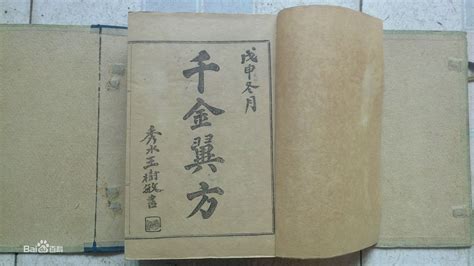 戊申冬月
千金翼方
秀水王樹敏書
Bai百科